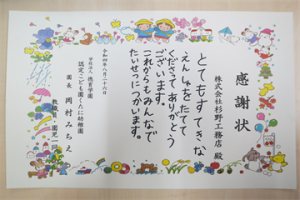 感謝状
株式会社杉野工務店 殿
とてもすてきな
えんしゃをたてて
くださってありがとう
ございます。
これからもみんなで
たいせつにつかいます。
令和四年八月二十六日
学校法人 徳育学園
認定こども園くたに幼稚園
園長 岡村みちえ
教職員 園児一同